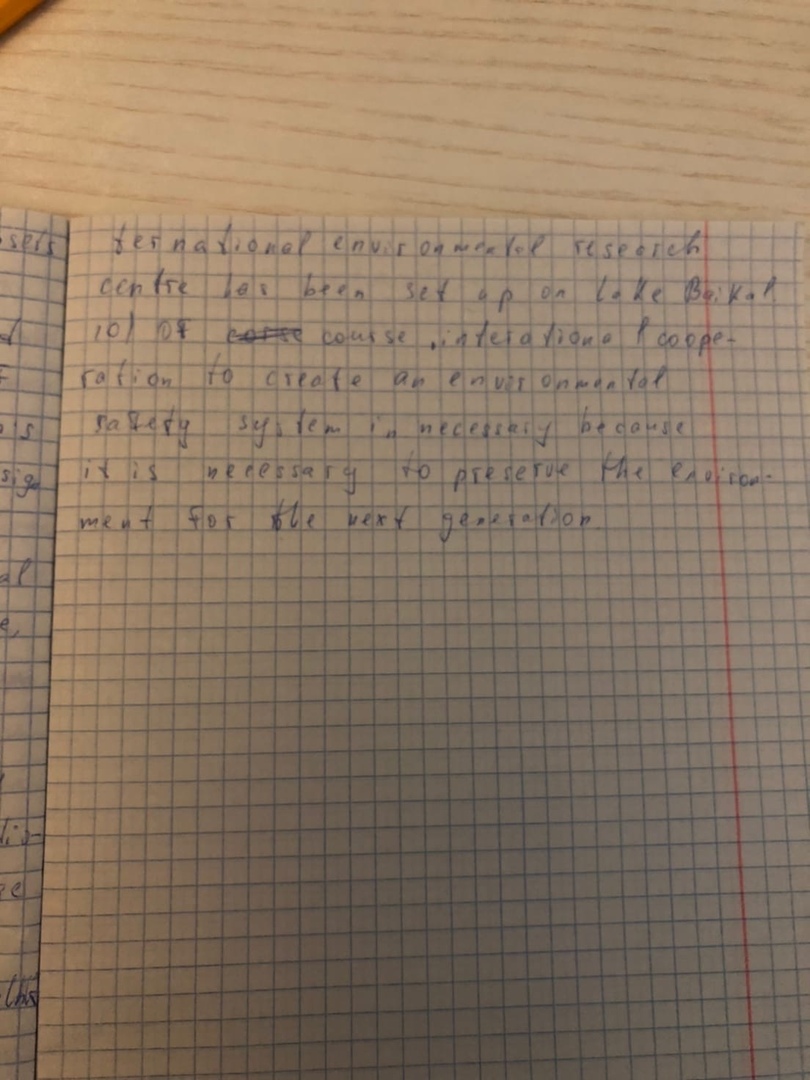 ternational environmental research
centre has been set up on lake Baikal
10) Of course, interational coope-
ration to create an environmental
safety system in necessary because
it is necessary to preserve the environ-
ment for the next generation